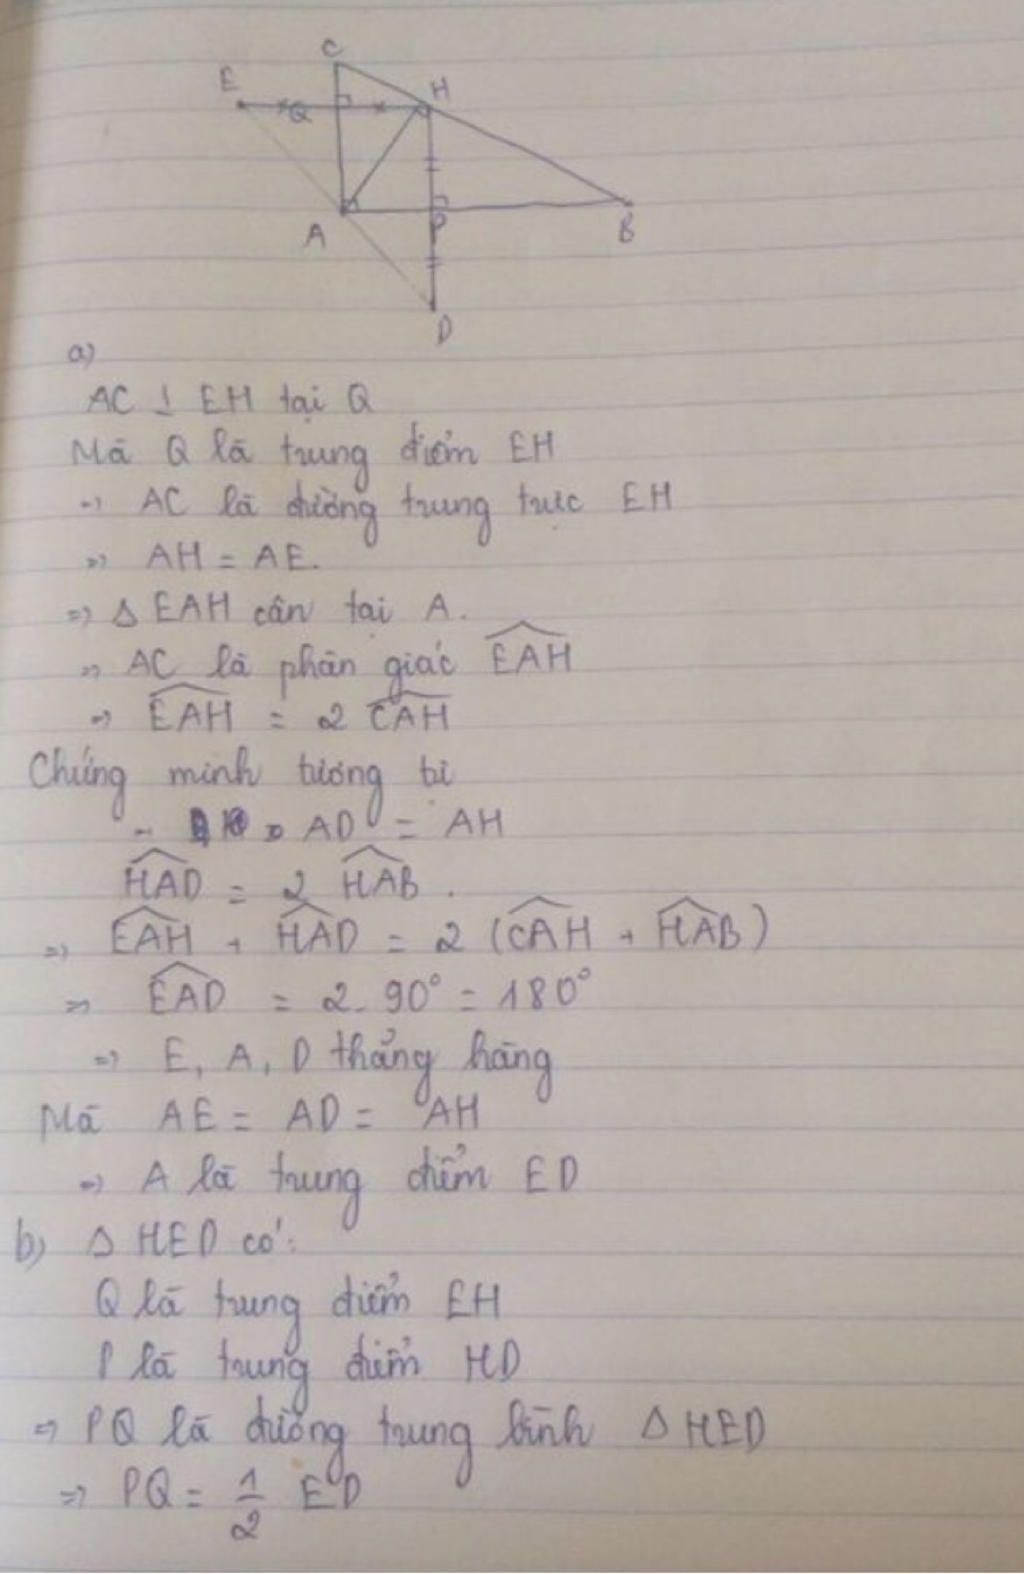 C
E
H
Q
A
P
B
D
a)
AC ⊥ EH tại Q
Mà Q là trung điểm EH
=> AC là đường trung trực EH
=> AH = AE.
=> Δ EAH cân tại A.
=> AC là phân giác \widehat{EAH}
=> \widehat{EAH} = 2 \widehat{CAH}
Chứng minh tương tự
AD = AH
\widehat{HAD} = 2 \widehat{HAB}.
=> \widehat{EAH} + \widehat{HAD} = 2 (\widehat{CAH} + \widehat{HAB})
=> \widehat{EAD} = 2.90° = 180°
=> E, A, D thẳng hàng
Mà AE = AD = AH
=> A là trung điểm ED
b) Δ HED có:
Q là trung điểm EH
P là trung điểm HD
=> PQ là đường trung bình Δ HED
=> PQ = 1/2 ED